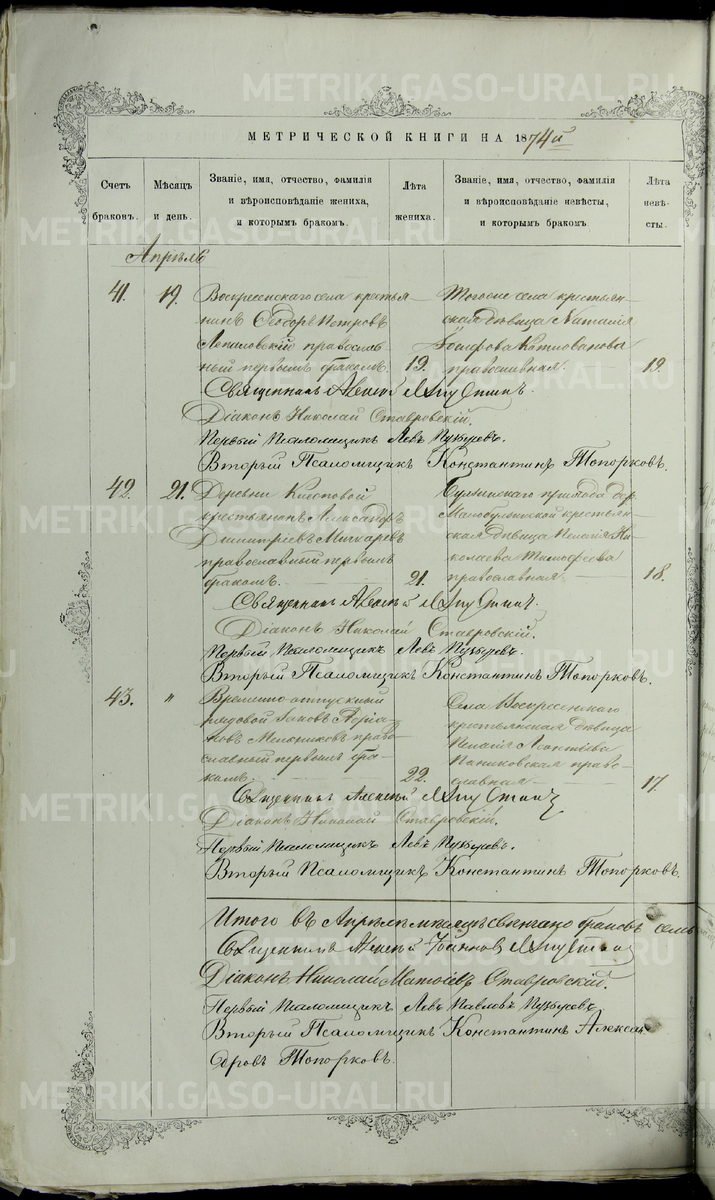 METRIKI.GASO-URAL.RU
МЕТРИЧЕСКОЙ КНИГИ НА 1874й
Счетъ браковъ.
Мѣсяцъ и день.
Званіе, имя, отчество, фамилія и вѣроисповѣданіе жениха, и которымъ бракомъ.
Лѣта жениха.
Званіе, имя, отчество, фамилія и вѣроисповѣданіе невѣсты, и которымъ бракомъ.
Лѣта невѣсты.
Апрѣль
41. 19. Воскресенскаго села крестья-
нинъ Ѳеодоръ Петровъ
православ-
ный первымъ бракомъ. 19.
Тогоже села крестьян-
ская дѣвица Наталія
Іосифова
православная. 19.
Священникъ Алексѣй
Діаконъ Николай Ставровскій.
Первый Псаломщикъ Левъ Пузыревъ.
Второй Псаломщикъ Константинъ Топорковъ.
42. 21. Деревни
крестьянинъ Александръ
Димитріевъ
православный первымъ
бракомъ. 21.
прихода дер.
крестьян-
ская дѣвица Пелагія Ни-
колаева Тимофеева
православная. 18.
Священникъ Алексѣй
Діаконъ Николай Ставровскій.
Первый Псаломщикъ Левъ Пузыревъ.
Второй Псаломщикъ Константинъ Топорковъ.
43. " Временно-отпускный
рядовой Іаковъ Адріа-
новъ Мельниковъ право-
славный первымъ бра-
комъ. 22.
Села Воскресенскаго
крестьянская дѣвица
Пелагія Леонтьева
Паниковская право-
славная 17.
Священникъ Алексѣй
Діаконъ Николай Ставровскій.
Первый Псаломщикъ Левъ Пузыревъ.
Второй Псаломщикъ Константинъ Топорковъ.
Итого въ Апрѣлѣ мѣсяцѣ свѣнчано браковъ семь
Священникъ Алексѣй Іоанновъ
Діаконъ Николай Матѳіевъ Ставровскій.
Первый Псаломщикъ Левъ Павловъ Пузыревъ
Второй Псаломщикъ Константинъ Алексан-
дровъ Топорковъ.